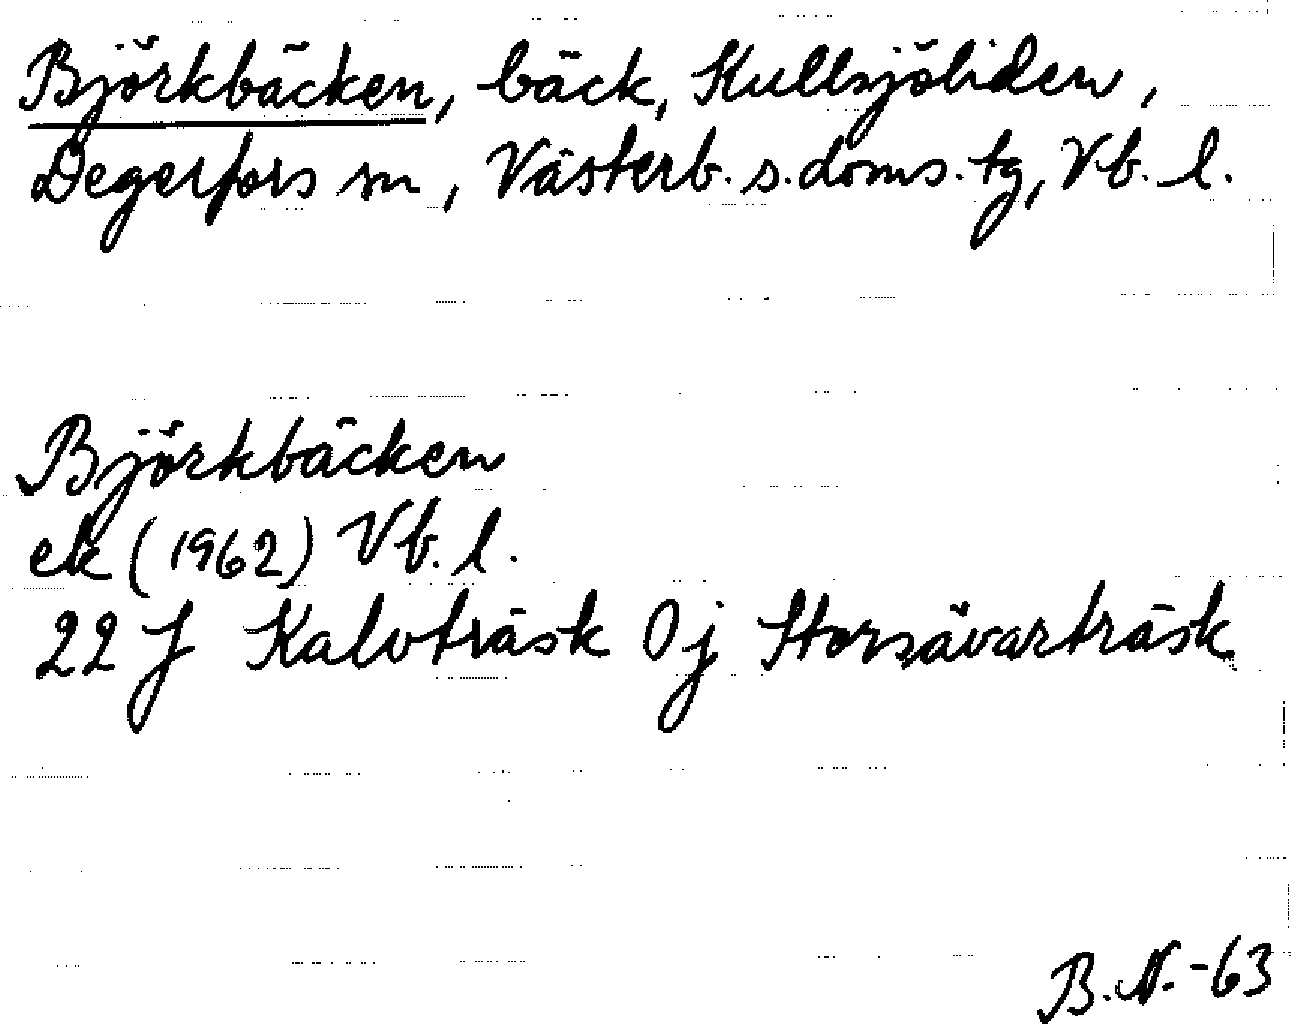 Björkbäcken, bäck, Kullsjöliden,
Degerfors sn, Västerb. s. doms. tg, Vb. l.
Björkbäcken
ek (1962) Vb. l.
22 J Kalvträsk 0 j Storsävarträsk
B.N.-63